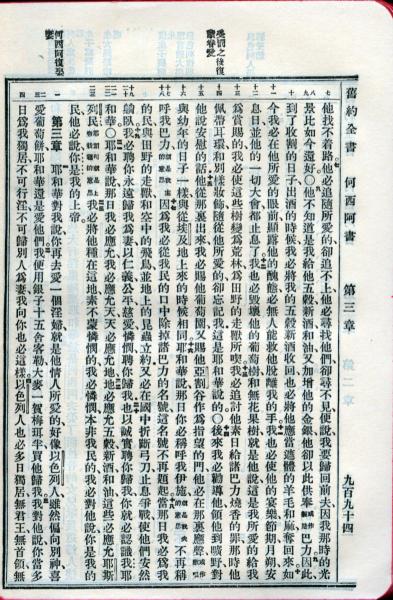 舊約全書　何西阿書　第三章　九百九十四
他找不着路他必追隨他所愛的卻追不上他必尋找他們卻尋不見便說我要歸回前夫因我那時的光
景比如今還好〇他不知道是我給他五穀新酒和油又加增他的金銀他卻以此供奉巴力因此
到了收割的日子出酒的時候我必將我的五穀新酒收回也必將他應當遮體的羊毛和麻奪回來如
今我必在他所愛的眼前顯露他的醜態必無人能救他脫離我的手我也必使他的宴樂節期月朔安
息日並他的一切大會都止息了我也必毀壞他的葡萄樹和無花果樹就是他說這是我所愛的給我
為賞賜的我必使這些樹變為荒林為田野的走獸所喫我必追討他素日給諸巴力燒香的罪那時他
佩帶耳環和別樣妝飾隨從他所愛的卻忘記我這是耶和華說的〇後來我必勸導他領他到曠野對
他說安慰的話他從那裏出來我必賜他葡萄園又賜他亞割谷作為指望的門他必在那裏應聲
與幼年的日子一樣與從埃及地上來的時候相同耶和華說那日你必稱呼我伊施就是我夫的意思不再稱
呼我巴力就是我主的意思因為我必從我民的口中除掉諸巴力的名號這名號不再提起當那日我必為我
的民與田野的走獸和空中的飛鳥並地上的昆蟲立約又必在國中折斷弓刀止息爭戰使他們安然
躺臥我必聘你永遠歸我為妻以仁義公平慈愛憐憫聘你歸我也以誠實聘你歸我你就必認識我耶
和華〇耶和華說那日我必應允我必應允天天必應允地地必應允五穀新酒和油這些必應允耶斯
列民我必將他種在這地素不蒙憐憫的我必憐憫本非我民的我必對他說你是我的
民他必說你是我的上帝
第三章　耶和華對我說你再去愛一個淫婦就是他情人所愛的好像以色列人雖然偏向別神喜
愛葡萄餅耶和華還是愛他們我便用銀子十五舍客勒大麥一賀梅珥半買他歸我我對他說你當多
日為我獨居不可行淫不可歸別人為妻我向你也必這樣以色列人也必多日獨居無君王無首領無
受罰之後復
蒙眷愛
何西阿復娶
妻